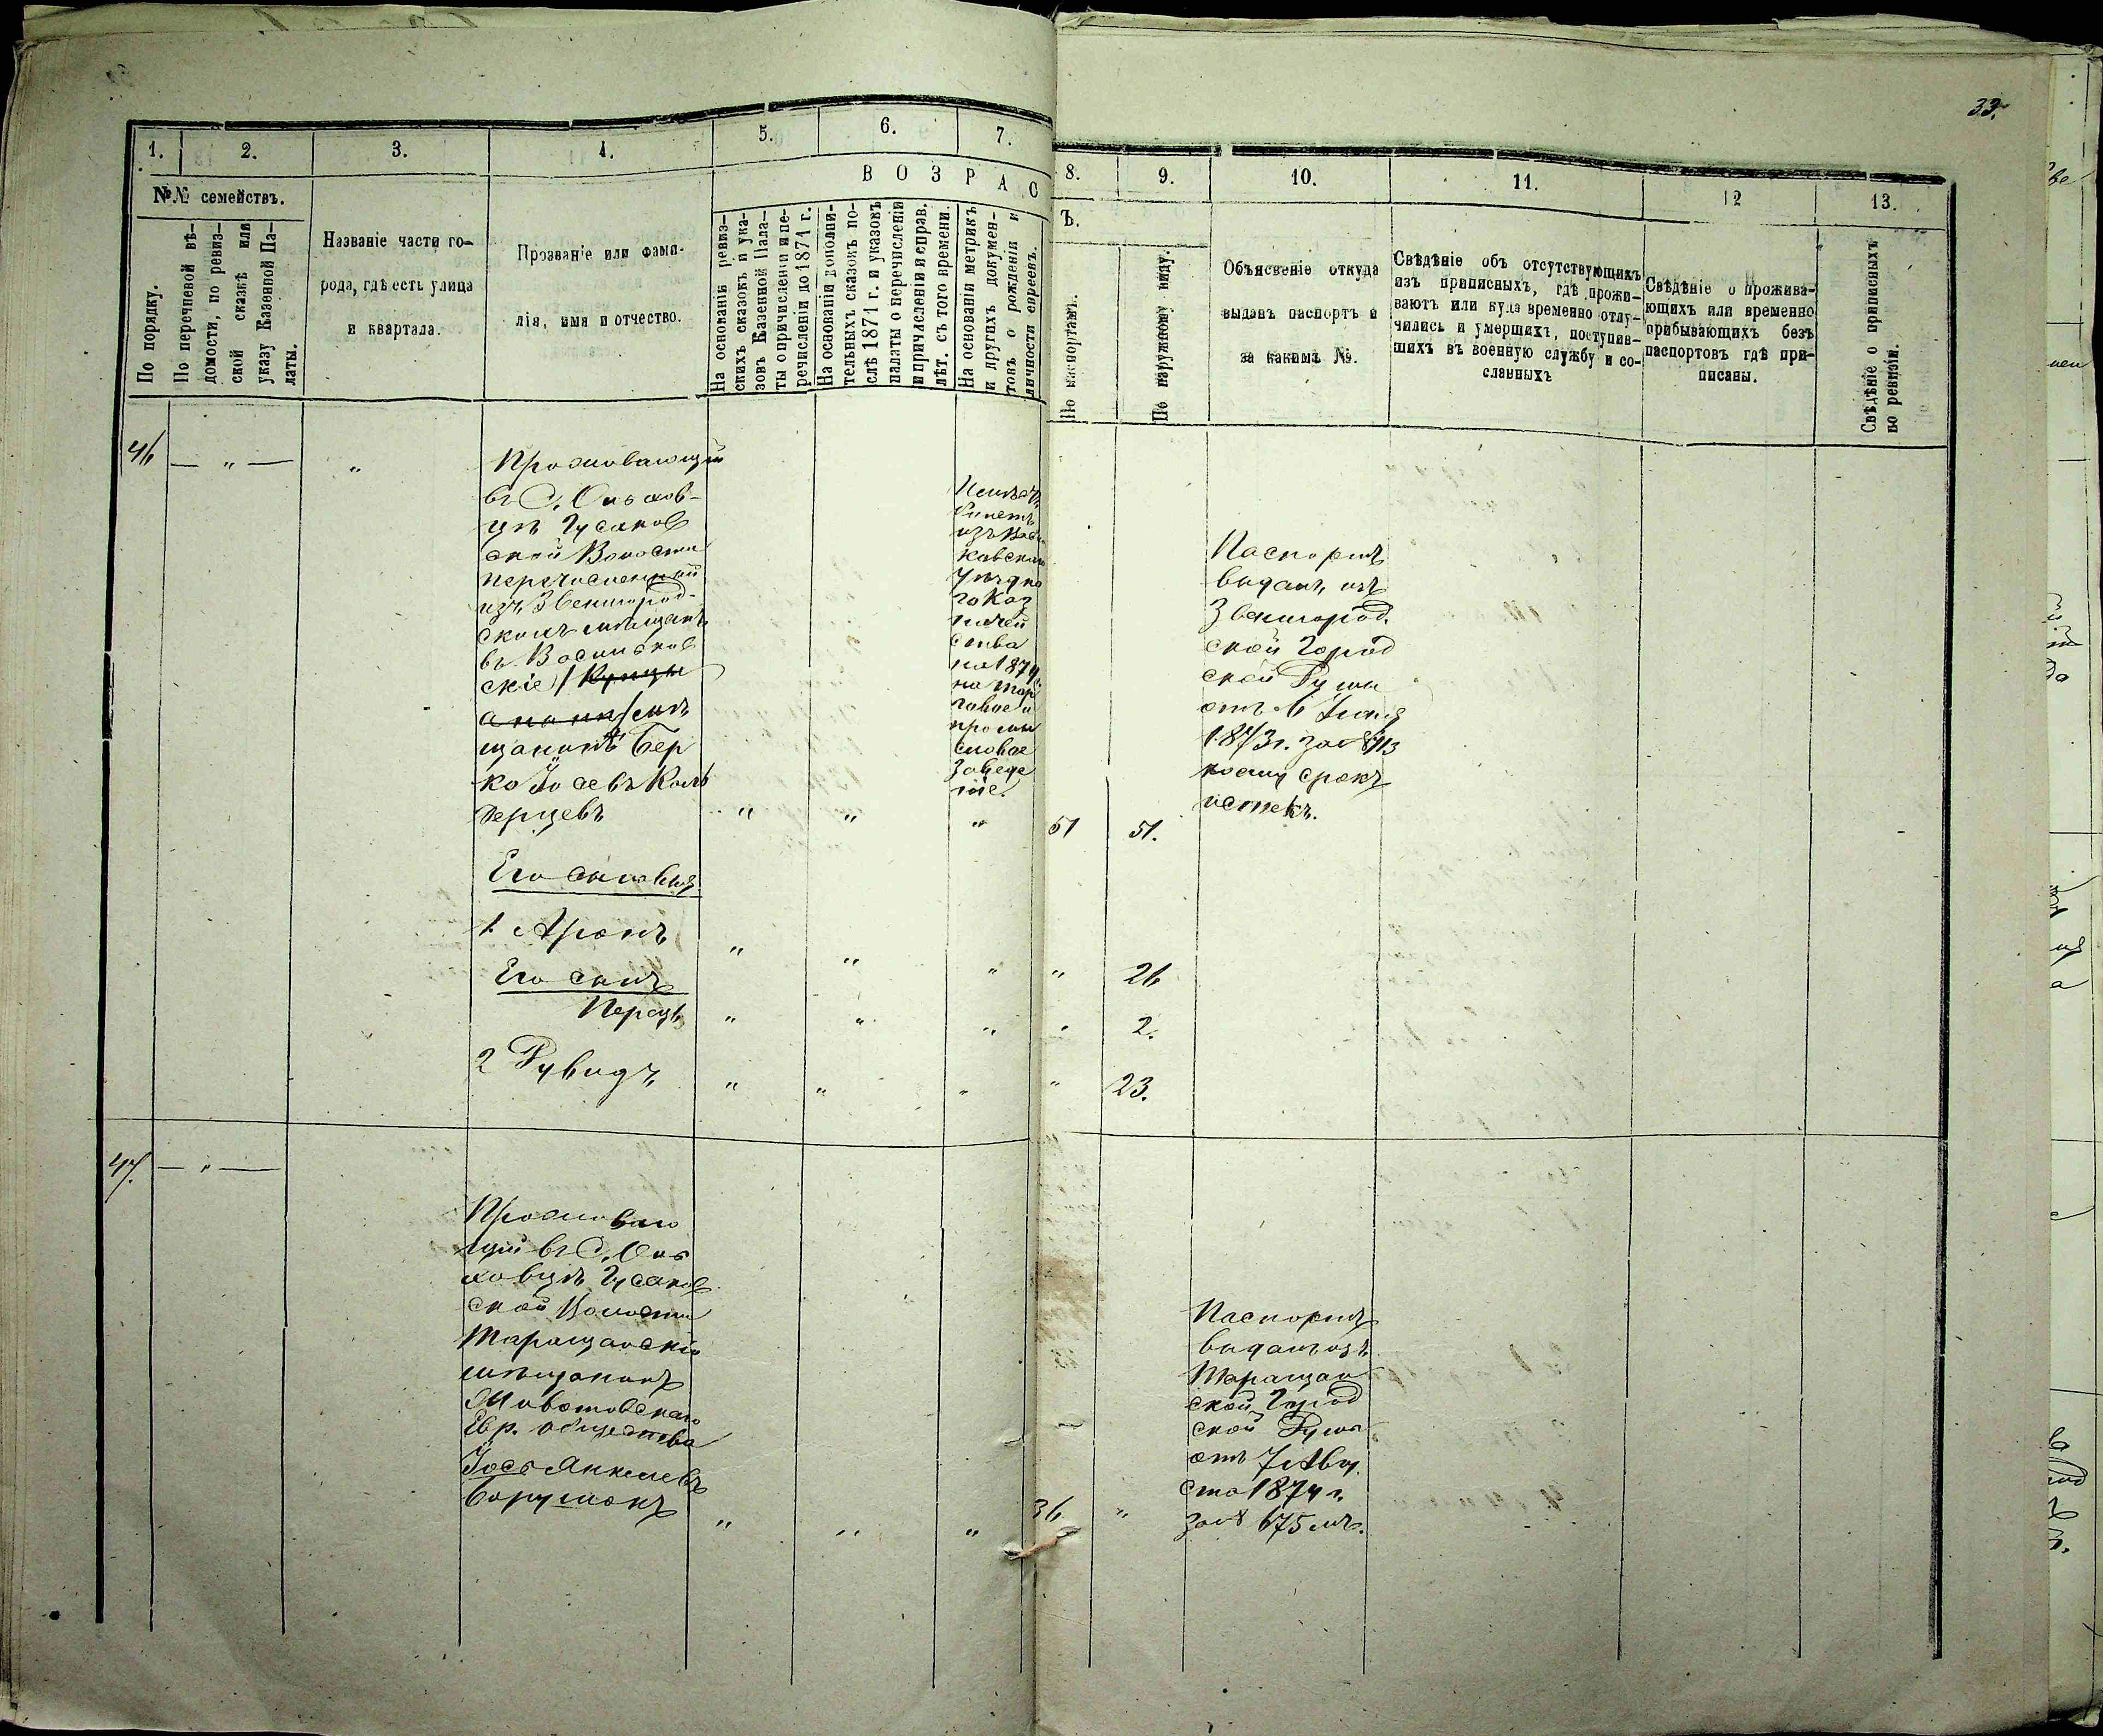 33.
1.
2.
3.
4.
5.
6.
7.
8.
9.
10.
11.
12
13.
№№ семействъ.
По порядку.
По перечневой вѣ-
домости, по ревиз-
ской сказкѣ или
указу Казенной Па-
латы.
Названіе части го-
рода, гдѣ есть улица
и квартала.
Прозваніе или фами-
лія, имя и отчество.
ВОЗРАС
Ъ.
На основаніи ревиз-
скихъ сказокъ и ука-
зовъ Казенной Пала-
ты о причисленіи и пе-
речисленіи до 1871 г.
На основаніи дополни-
тельныхъ сказокъ по-
слѣ 1871 г. и указовъ
палаты о перечисленіи
и причисленіи и справ.
лѣт. съ того времени.
На основаніи метрикъ
и другихъ докумен-
товъ о рожденіи и
личности евреевъ.
По паспортамъ.
По наружному виду.
Объясненіе откуда
выданъ паспортъ и
за какимъ №.
Свѣдѣніе объ отсутствующихъ
изъ приписныхъ, гдѣ прожи-
ваютъ или куда временно отлу-
чились и умершихъ, поступив-
шихъ въ военную службу и со-
сланныхъ
Свѣдѣніе о прожива-
ющихъ или временно
прибывающихъ безъ
паспортовъ гдѣ при-
писаны.
Свѣдѣніе о приписныхъ
по ревизіи.
46 — " — "
Проживающій
въ С. Ольхов-
цѣ Гусаков
ской Волости
перечисленный
изъ Звенигород-
скихъ мѣщанъ
въ Васильков
скіе / Купцы
мѣ
щанинъ Бер
ко Іосевъ Коль
Перцевъ " " "
билетъ
изъ Ва
ковскаг
Уѣздна
го Каз
начей
ства
на 1874
на тор
говое и
промы
словое
заведе
ніе.
51 51.
Паспортъ
выданъ изъ
Звенигород.
ской Город
ской Думы
отъ 6 Іюня
1873 г. за №
коему срокъ
истекъ.
Его сыновья
1 Аронъ " " " " 26
Его сынъ
Перецъ " " " " 2.
2 Рувидъ " " " " 23.
47. — " —
Проживаю
щій въ С. Оль
ховцѣ Гусаков
ской Волости
Таращанскій
мѣщанинъ
Евр. общества
Іось Янкелевъ
Борушокъ " " " 36 "
Паспортъ
выданъ изъ
Таращан
ской Город
ской Думы
отъ 7 Авгу
ста 1874 г.
за № 675 мъ.